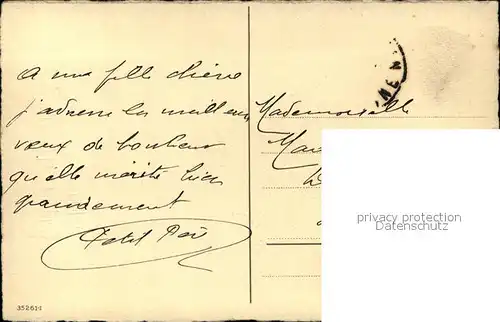 A ma fille chère
j'adresse les meilleurs
vœux de bonheur
qu'elle mérite bien
grandement
Petit Père
Mademoiselle
privacy protection
ansichtskartenhandel.de
35261-1